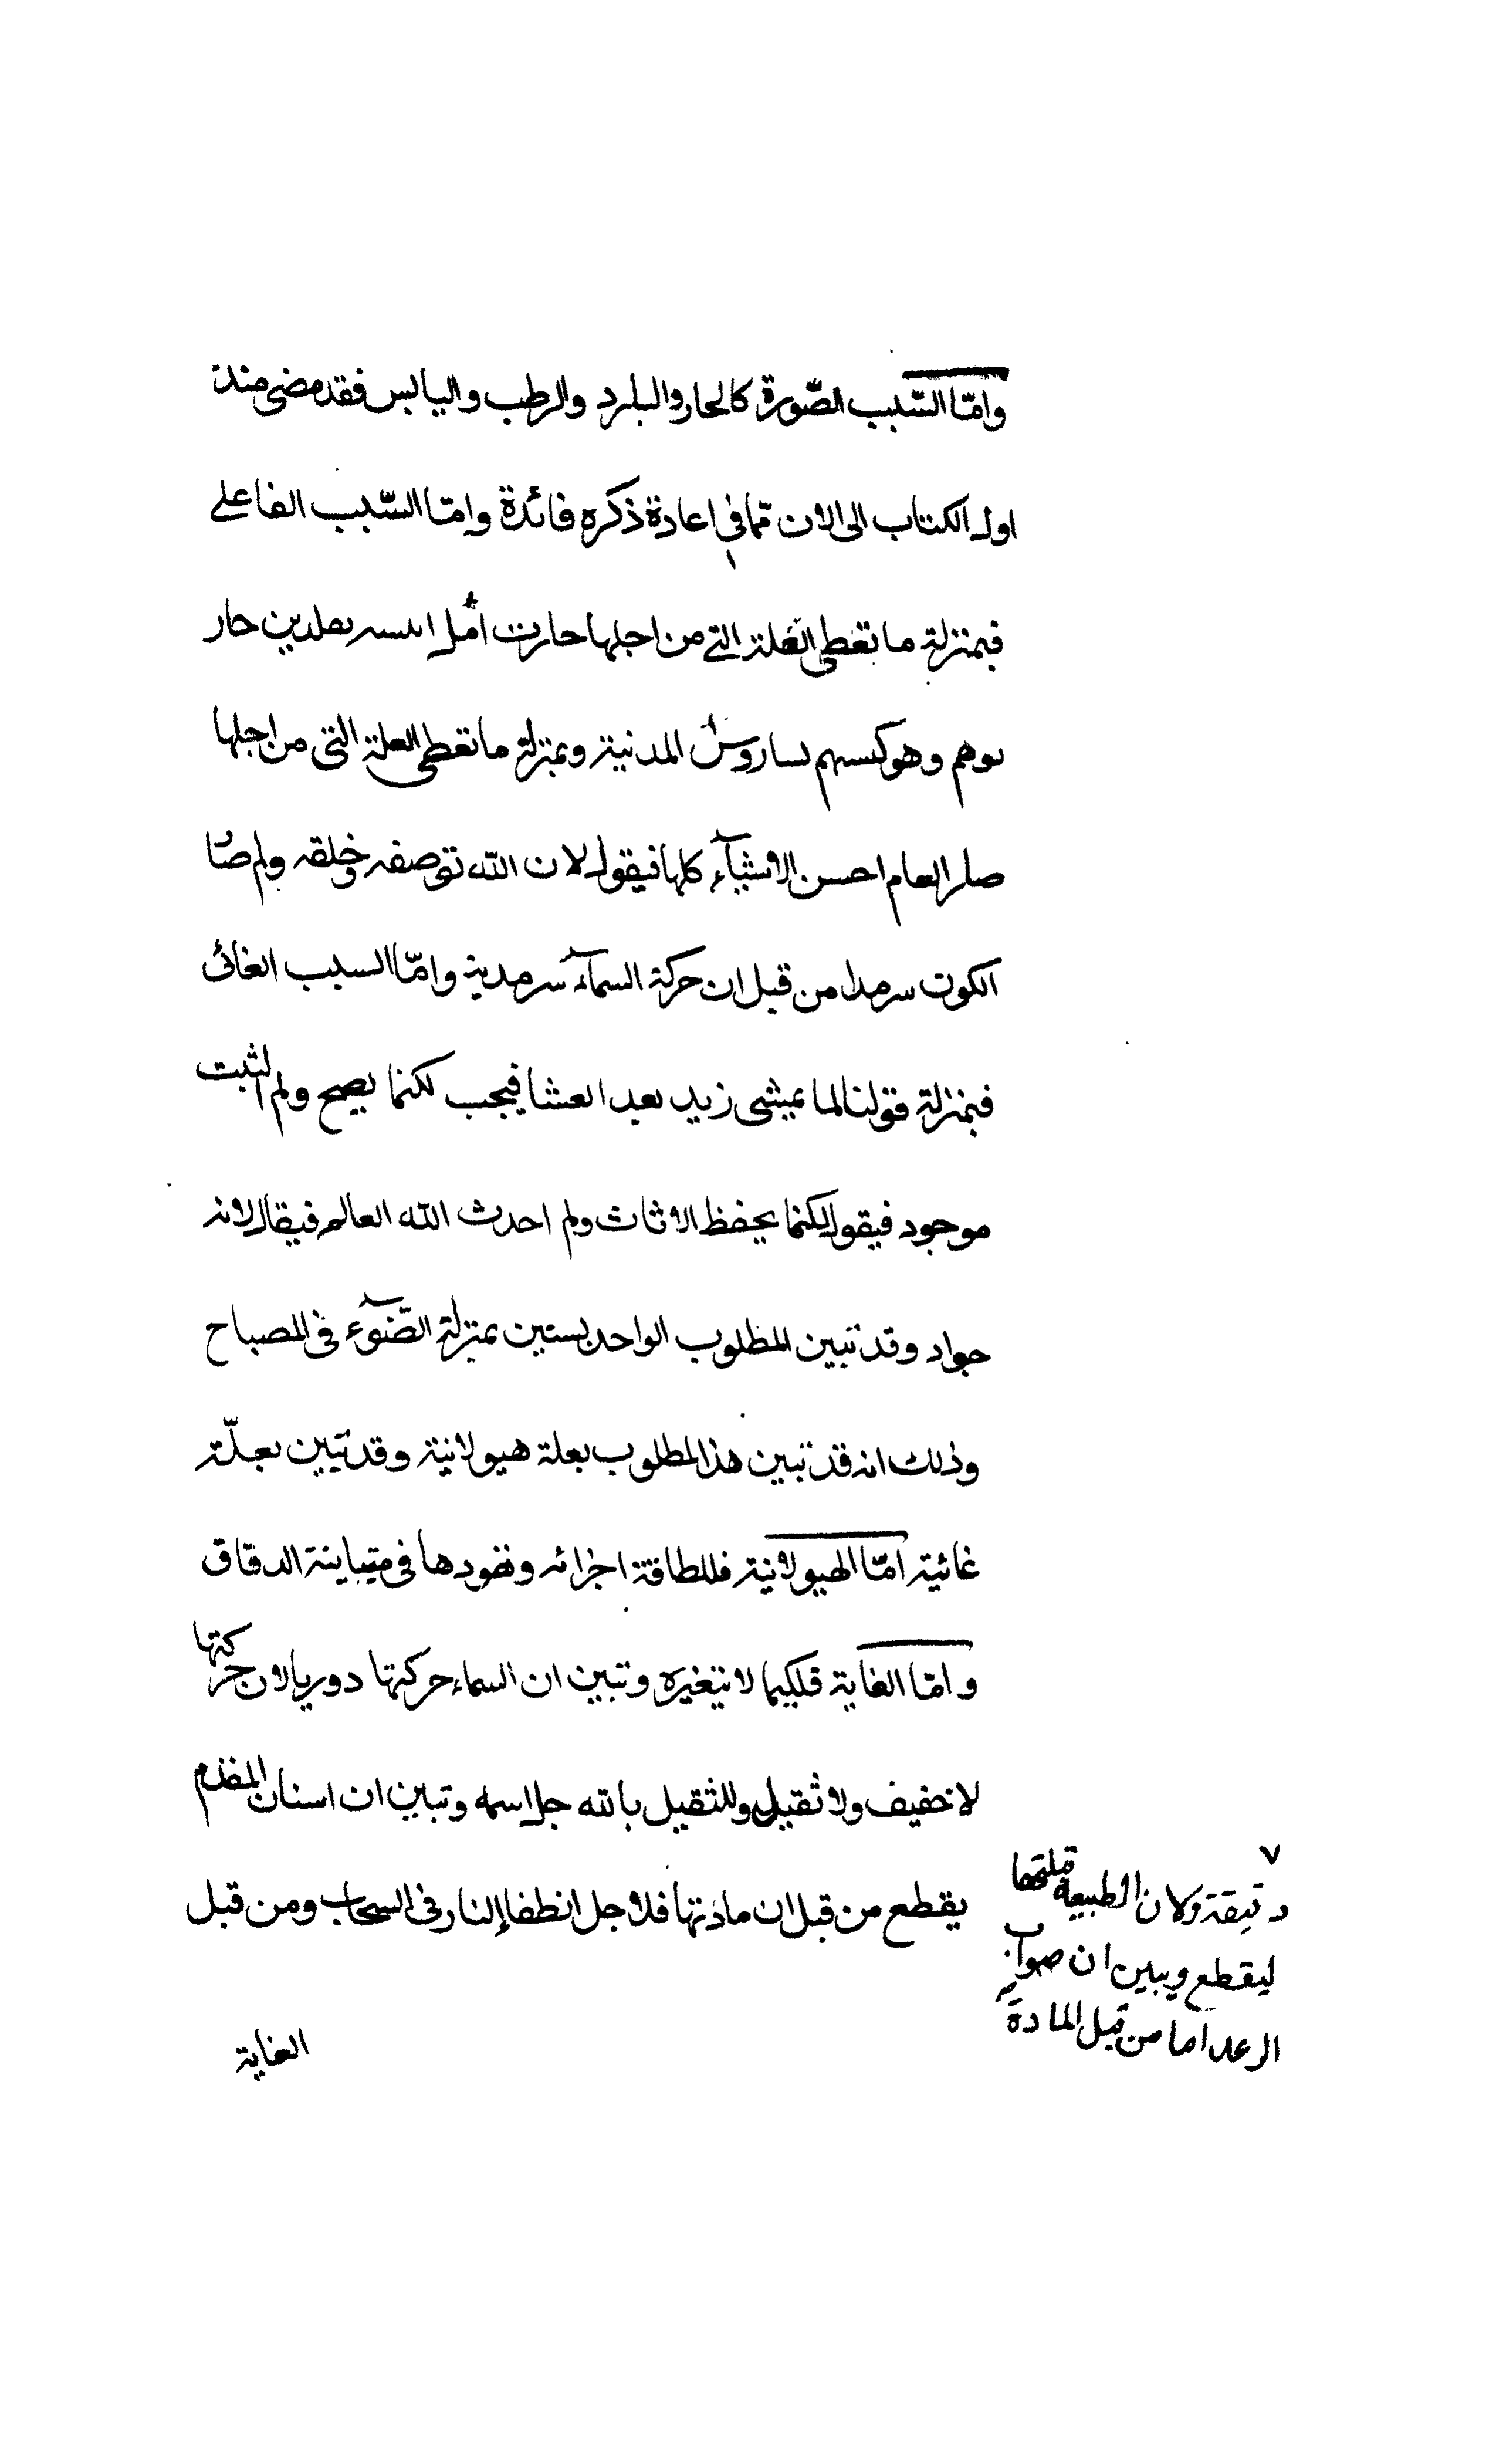 وامّا السّبب الصّورة كالحار والبارد والرطب واليابس فقد مضى منذ
اول الكتاب الى الان ممّا في اعادة ذكره فائدة وامّا السّبب الفاعلي
فبمنزلة ما تعطى العلة التي من اجلها حارت اهل حار
وهو المدنية وبمنزلة ما تعطى العلة التي من اجلها
صار العام احسن الاشيآء كلها فيقول لان اللّه تع وخلقه ولم صار
الكون سرمدا من قبل ان حركة السمآء سرمدية وامّا السبب الغائى
فبمنزلة قولنا لما يمشى زيد بعد العشا فيجب لكنما يصح ولم البيت
موجود فيقول لكنما يحفظ الاثاث ولم احدث اللّه العالم فيقال لانه
جواد وقد تبين المطلوب الواحد بستين بمنزلة الضّوء فى المصباح
وذلك انه قد تبين هذا المطلوب بعلة هيولانية وقد تبين بعلّة
غائية امّا الهيولانية فللطافة اجزائه ونفودها فى متباينة الدقاق
وامّا الغاية فلكيما لا تتغيره وتبين ان السماء حركتها دوريا لان حركتها
لا خفيف ولا ثقيل وللثقيل باللّه جل اسمه وتبين ان اسنان المقدم
يقطع من قبل ان مادتها فلاجل انطفاء النار فى السحاب ومن قبل
دقيقة ولان الطبيعة
ليقطع ويبين ان صواب
الرعد اما من قبل المادة
الغاية